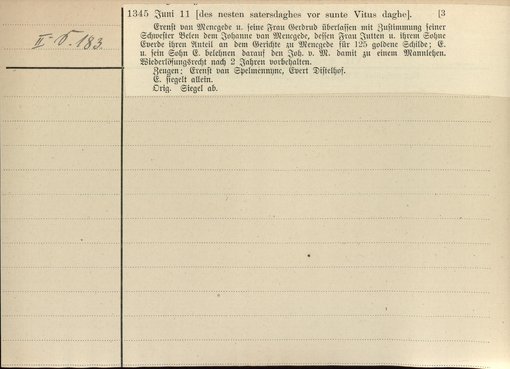 II-6.183.
1345 Juni 11 [des nesten satersdaghes vor sunte Vitus daghe]. [3
Ernst van Mencgede u. seine Frau Gerdrud überlassen mit Zustimmung seiner
Schwester Belen dem Johanne van Mencgede, dessen Frau Jutten u. ihrem Sohne
Everde ihren Anteil an dem Gerichte zu Mencgede für 125 goldene Schilde; E.
u. sein Sohn E. belehnen darauf den Joh. v. M. damit zu einem Mannlehen.
Wiederlösungsrecht nach 2 Jahren vorbehalten.
Zeugen: Ernst van Spelmennync, Evert Distelhof.
E. siegelt allein.
Orig. Siegel ab.